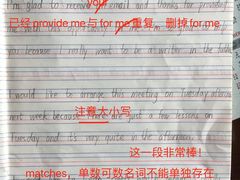 I'm glad to receive your email and thanks for provid
已经provide me与for me重复，删掉for me.
you because I really want to be a writer in the future
I would like to arrange this meeting on Tuesday afternoon
注意大小写
next week because there are just a few lessons on
Tuesday and it's very quite in the afternoon.
这一段非常棒！
matches，单数可数名词不能单独存在